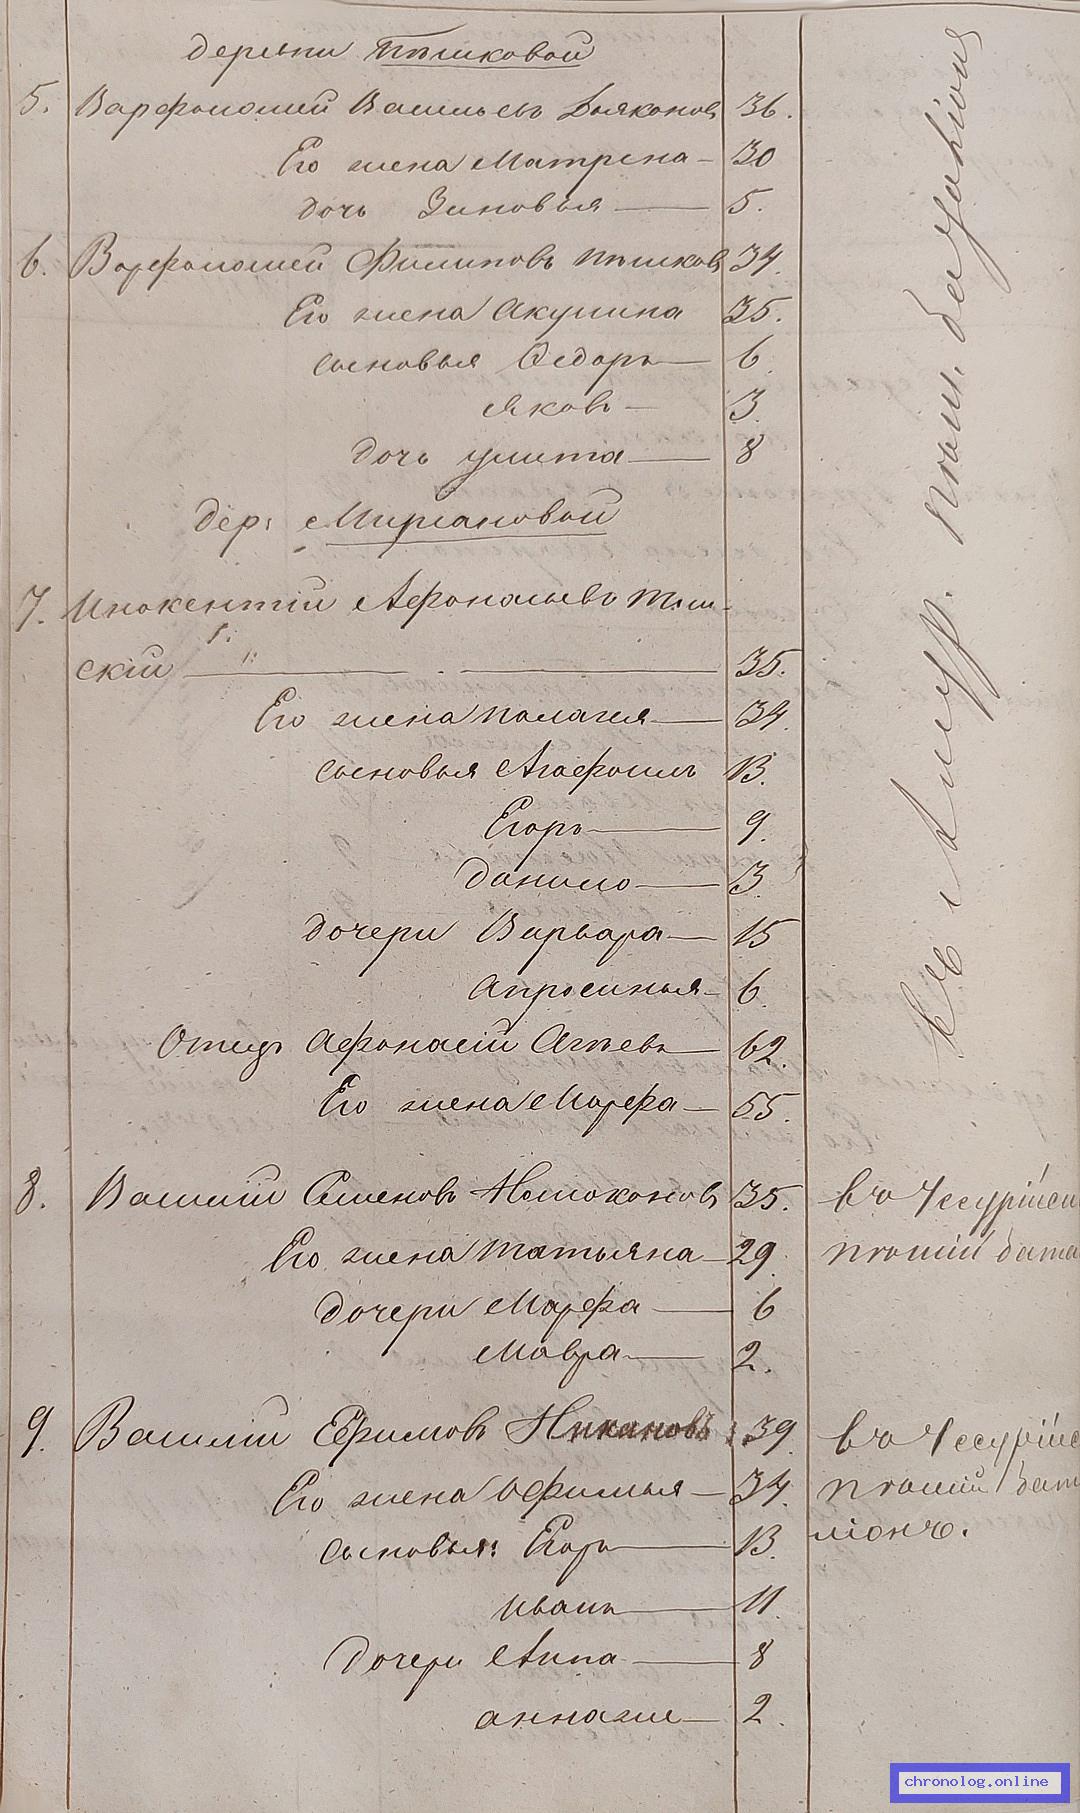 деревни Пѣшковой
5. Варфоломей Васильевъ Дьяконовъ 36.
Его жена Матрена 30
дочь Зиновья 5.
6. Варфоломей Филиповъ Пѣшковъ 34.
Его жена Акулина 35.
сыновья Ѳедоръ 6
Яковъ 3.
дочь Улита 8
дер: Мирсановой
7. Инокентій Афонасьевъ
скій 35.
Его жена Палагея 34.
сыновья Агафонъ 13.
Егоръ 9.
Данило 3
дочери Варвара 15
Апросинья 6.
Отецъ Афонасій Агѣевъ 62.
Его жена Марфа 55.
въ Амур. пѣш. баталіонъ
8. Василій Семеновъ 35. въ Уссурійскі
Его жена Татьяна 29. пѣшій бата
дочери Марфа 6
Мавра 2.
9. Василій Ефимовъ Никановъ 39. въ Уссурійс
Его жена Офимья 34. пѣшій бата
сыновья: Егоръ 13. ліонъ.
Иванъ 11.
дочери Анна 8
2.
chronolog.online